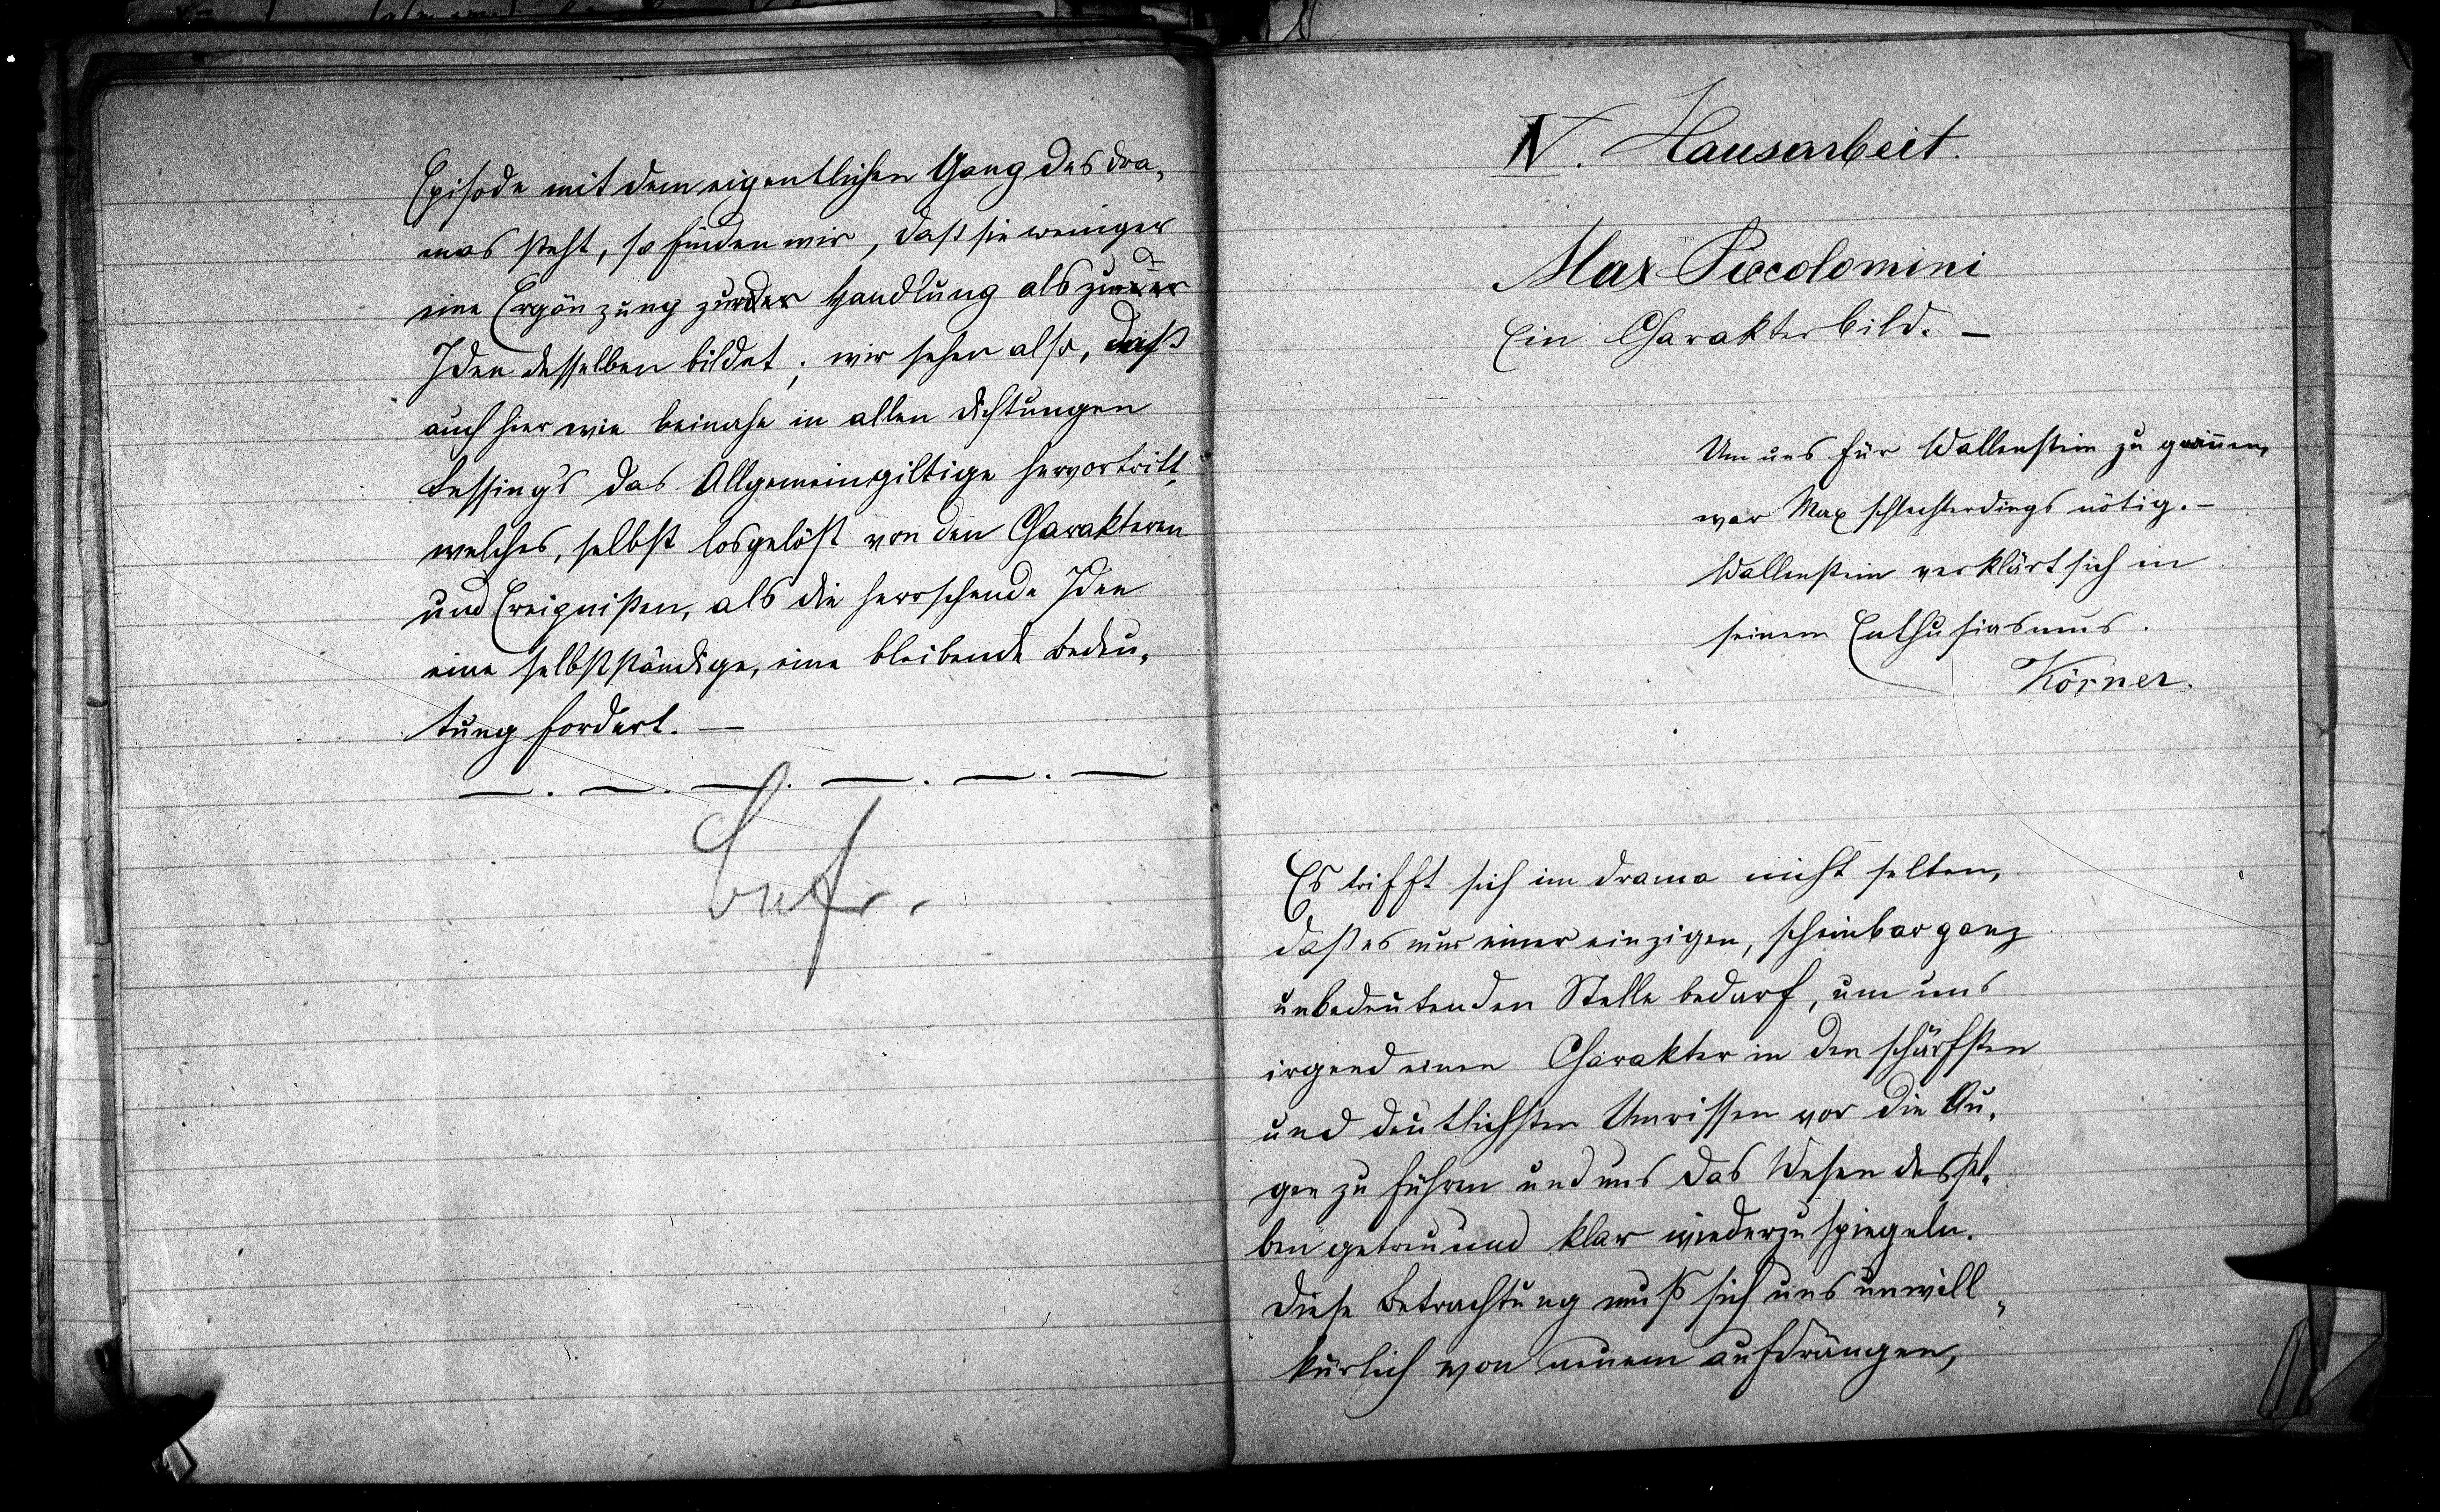 Episode mit dem eigentlichen Gang des Dra-
mas steht, so finden wir, daß sie weniger
eine Ergänzung zur der Handlung als zur
Idee desselben bildet; wir sehen also, daß
auch hier wie beinahe in allen Dichtungen
Lessing's das Allgemeingiltige hervortritt,
welches, selbst losgelöst von den Charakteren
und Ereignißen, als die herrschende Idee
eine selbstständige, eine bleibende Bedeu-
tung fordert. —
IV. Hausarbeit.
Max Piccolomini
Ein Charakterbild. —
Um uns für Wallenstein zu gewinnen,
war Max schlechterdings nötig. —
Wallenstein verklärt sich in
seinem Enthusiasmus.
Körner.
Es trifft sich im Drama nicht selten,
daß es nur einer einzigen, scheinbar ganz
unbedeutenden Stelle bedarf, um uns
irgend einen Charakter in den schärfsten
und deutlichsten Umrissen vor die Au-
gen zu führen und uns das Wesen dessel-
ben getreu und klar wiederzuspiegeln.
Diese Betrachtung muß sich uns unwill-
kürlich von neuem aufdrängen,